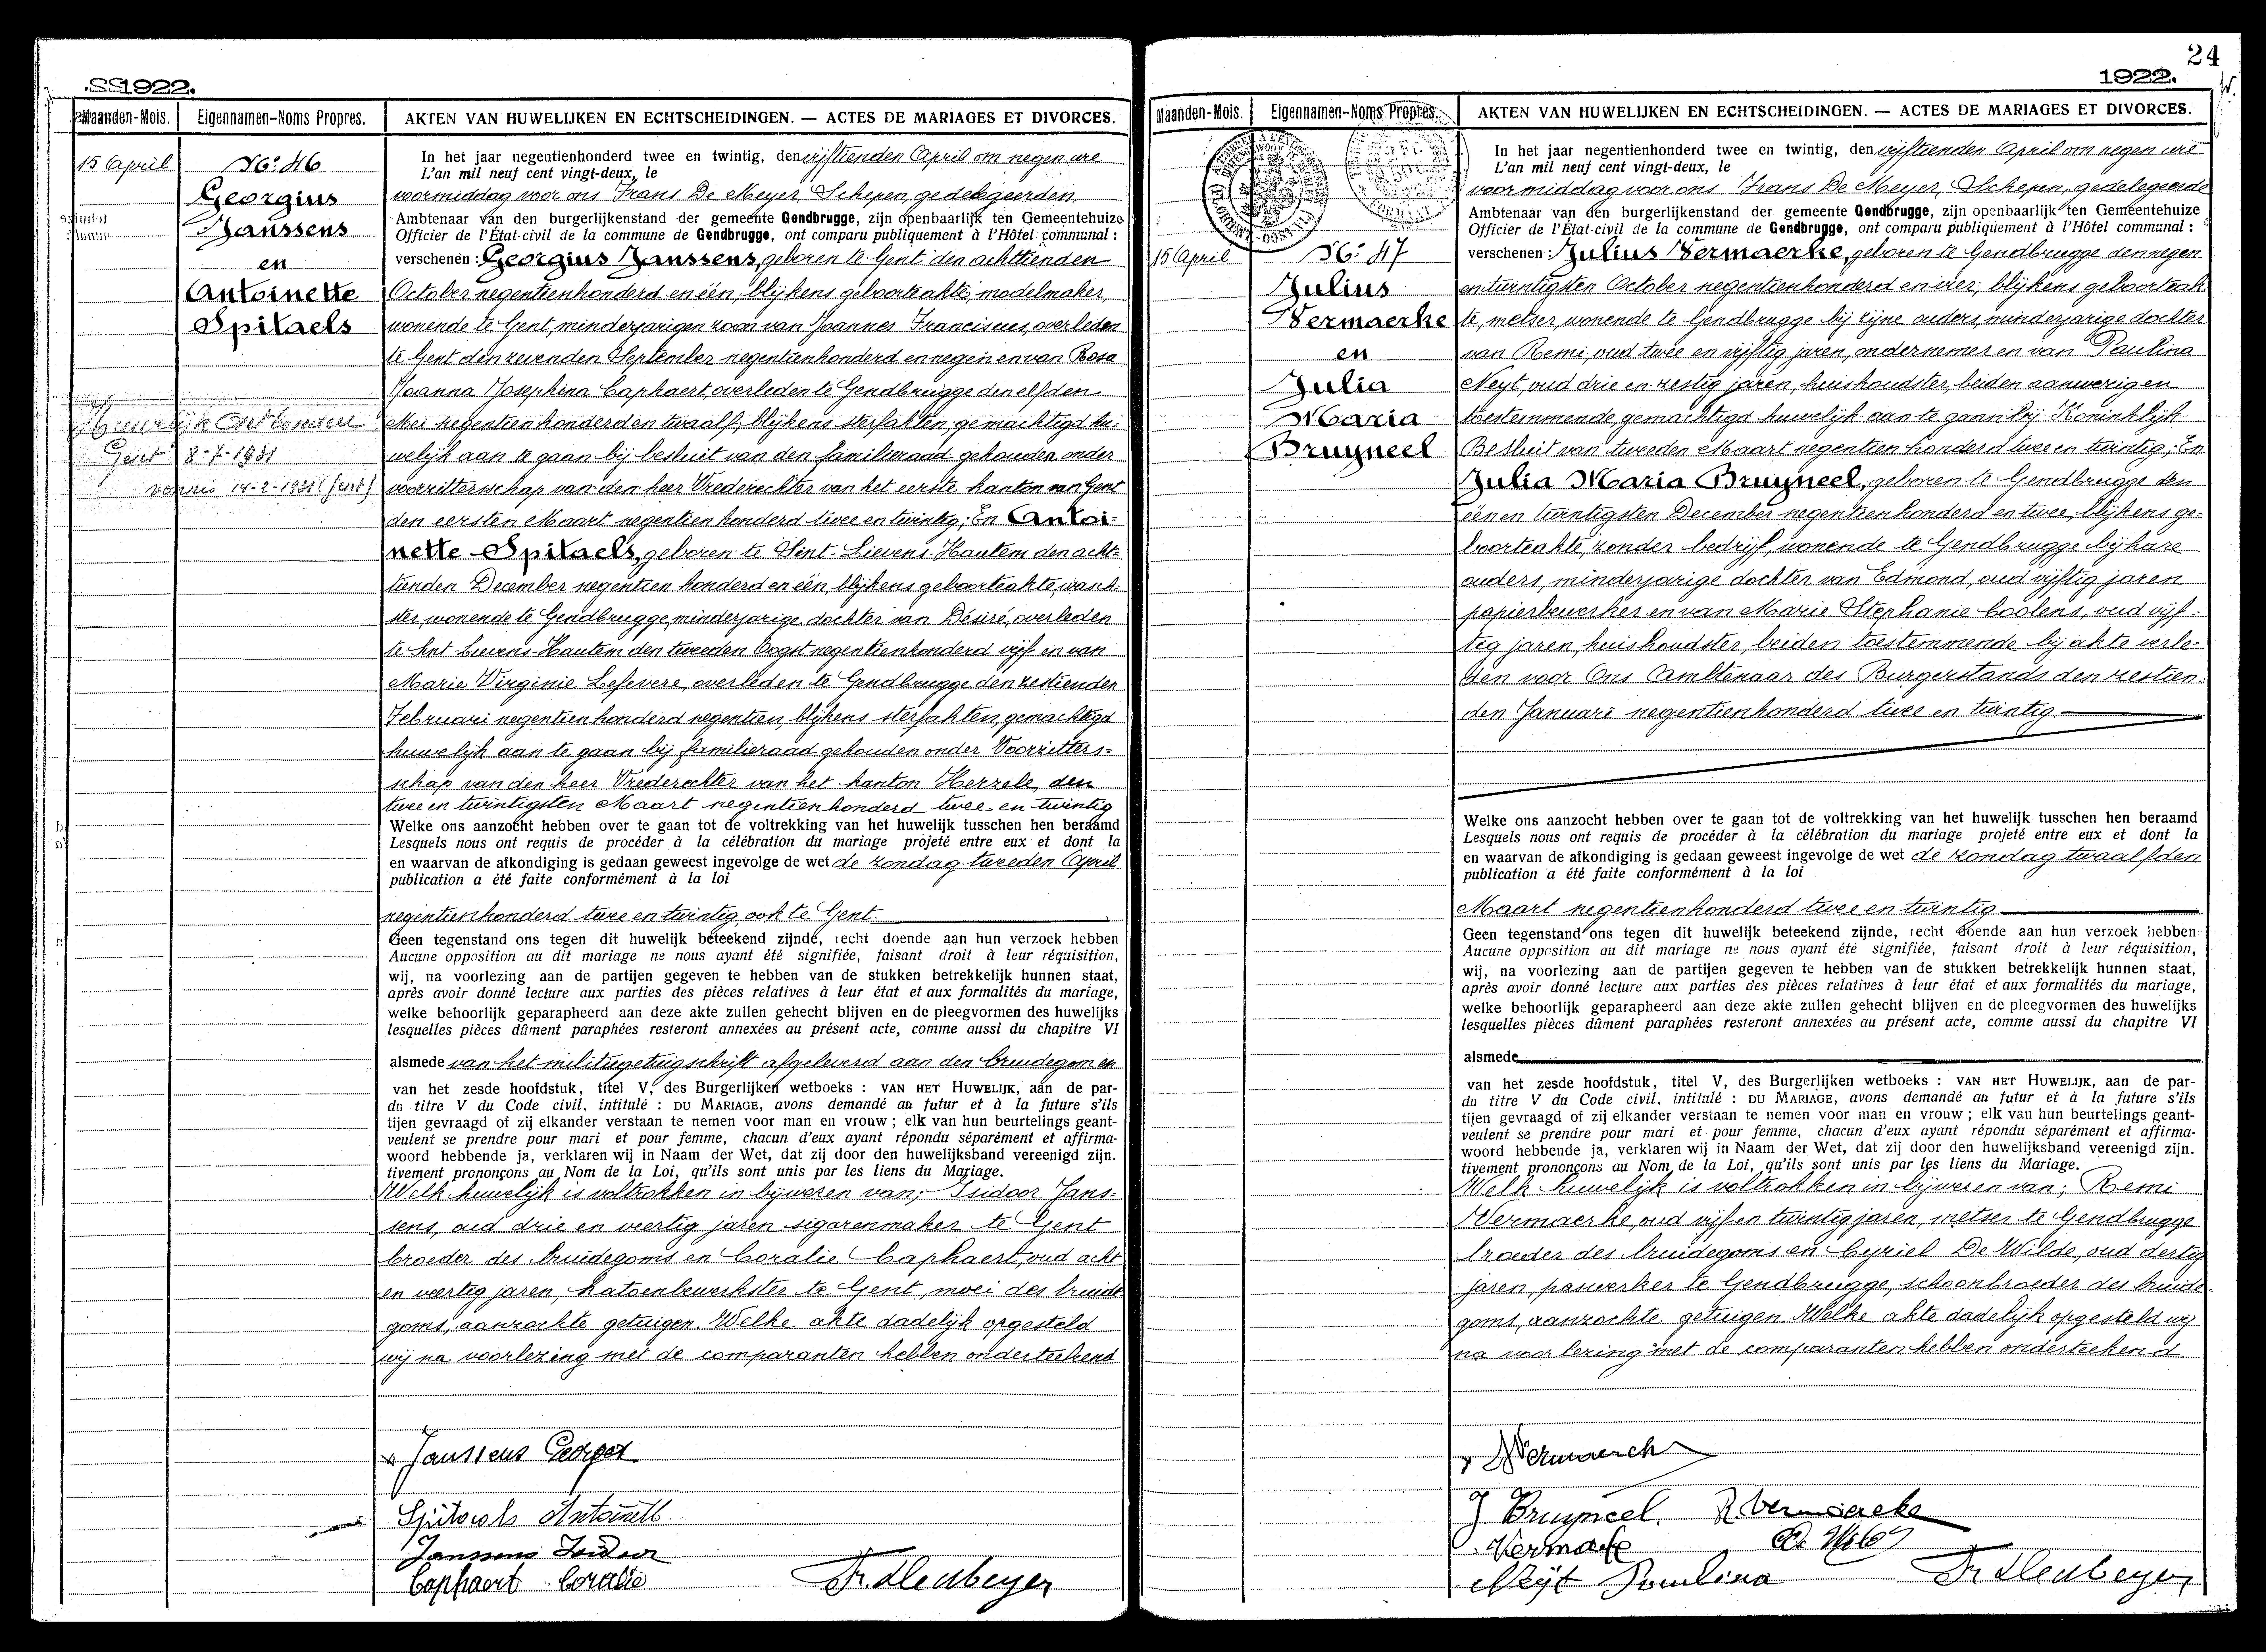 1922.
Maanden-Mois.
Eigennamen-Noms Propres.
AKTEN VAN HUWELIJKEN EN ECHTSCHEIDINGEN. — ACTES DE MARIAGES ET DIVORCES.
15 April
No. 46
Georgius
Janssens
en
Antoinette
Spitaels
Huwelijk Ontbonden
Gent 8-7-1931
vonnis 14-2-1931 (Gent)
In het jaar negentienhonderd twee en twintig, den vijftienden April om negen ure
L'an mil neuf cent vingt-deux, le
voormiddag voor ons Frans De Meyer, Schepen, gedelegeerden
Ambtenaar van den burgerlijkenstand der gemeente Gendbrugge, zijn openbaarlijk ten Gemeentehuize
Officier de l'État-civil de la commune de Gendbrugge, ont comparu publiquement à l'Hôtel communal :
verschenen : Georgius Janssens, geboren te Gent den achttienden
October negentienhonderd en één, blijkens geboorteakte, modelmaker,
wonende te Gent, minderjarigen zoon van Joannes Franciscus, overleden
te Gent den zevenden September negentienhonderd en negen en van Rosa
Joanna Josephina Caphaert, overleden te Gendbrugge den elfden
Mei negentienhonderd en twaalf, blijkens sterfakten, gemachtigd hu-
welijk aan te gaan bij besluit van den familieraad gehouden onder
voorzittersschap van den heer Vrederechter van het eerste kanton van Gent
den eersten Maart negentien honderd twee en twintig; En Antoi=
nette Spitaels, geboren te Sint-Lievens-Hautem den acht=
tienden December negentien honderd en één, blijkens geboorteakte, wasch-
ster, wonende te Gendbrugge, minderjarige dochter van Désiré, overleden
te Sint Lievens-Hautem den tweeden Oogst negentienhonderd vijf en van
Marie Virginie Lefevere, overleden te Gendbrugge den zestienden
Februari negentien honderd negentien, blijkens sterfakten, gemachtigd
huwelijk aan te gaan bij familieraad gehouden onder Voorzitters=
schap van den heer Vrederechter van het kanton Herzele, den
twee en twintigsten Maart negentienhonderd twee en twintig
Welke ons aanzocht hebben over te gaan tot de voltrekking van het huwelijk tusschen hen beraamd
Lesquels nous ont requis de procéder à la célébration du mariage projeté entre eux et dont la
en waarvan de afkondiging is gedaan geweest ingevolge de wet de zondag tweeden April
publication a été faite conformément à la loi
negentienhonderd twee en twintig ook te Gent.
Geen tegenstand ons tegen dit huwelijk beteekend zijnde, recht doende aan hun verzoek hebben
Aucune opposition au dit mariage ne nous ayant été signifiée, faisant droit à leur réquisition,
wij, na voorlezing aan de partijen gegeven te hebben van de stukken betrekkelijk hunnen staat,
après avoir donné lecture aux parties des pièces relatives à leur état et aux formalités du mariage,
welke behoorlijk geparapheerd aan deze akte zullen gehecht blijven en de pleegvormen des huwelijks
lesquelles pièces dûment paraphées resteront annexées au présent acte, comme aussi du chapitre VI
alsmede van het militiegetuigschrift afgeleverd aan den bruidegom en
van het zesde hoofdstuk, titel V, des Burgerlijken wetboeks : VAN HET HUWELIJK, aan de par-
du titre V du Code civil, intitulé : DU MARIAGE, avons demandé au futur et à la future s'ils
tijen gevraagd of zij elkander verstaan te nemen voor man en vrouw ; elk van hun beurtelings geant-
veulent se prendre pour mari et pour femme, chacun d'eux ayant répondu séparément et affirma-
woord hebbende ja, verklaren wij in Naam der Wet, dat zij door den huwelijksband vereenigd zijn.
tivement prononçons au Nom de la Loi, qu'ils sont unis par les liens du Mariage.
Welk huwelijk is voltrokken in bijwezen van; Isidoor Jans=
sens, oud drie en veertig jaren sigarenmaker te Gent
broeder des bruidegoms en Coralie Caphaert, oud acht
en veertig jaren, katoenbewerkster te Gent, moei des bruide
goms, aanzochte getuigen. Welke akte dadelijk opgesteld
wij na voorlezing met de comparanten hebben onderteekend
Janssens Georges
Spitaels Antoinett
Janssens Isidoor
Caphaert Coralie
Fr. DeMeyer
24
1922.
Maanden-Mois.
Eigennamen-Noms Propres.
AKTEN VAN HUWELIJKEN EN ECHTSCHEIDINGEN. — ACTES DE MARIAGES ET DIVORCES.
15 April
No. 47
Julius
Vermaerke
en
Julia
Maria
Bruyneel
In het jaar negentienhonderd twee en twintig, den vijftienden April om negen ure
L'an mil neuf cent vingt-deux, le
voormiddag voor ons Frans De Meyer, Schepen, gedelegeerde
Ambtenaar van den burgerlijkenstand der gemeente Gendbrugge, zijn openbaarlijk ten Gemeentehuize
Officier de l'État-civil de la commune de Gendbrugge, ont comparu publiquement à l'Hôtel communal :
verschenen : Julius Vermaerke, geboren te Gendbrugge den negen
en twintigsten October negentienhonderd en vier, blijkens geboorteak
te, metser, wonende te Gendbrugge bij zijne ouders, minderjarige dochter
van Remi, oud twee en vijftig jaren, ondernemer en van Paulina
Neyt, oud drie en zestig jaren, huishoudster, beiden aanwezig en
toestemmende, gemachtigd huwelijk aan te gaan bij Koninklijk
Besluit van tweeden Maart negentien honderd twee en twintig; En
Julia Maria Bruyneel, geboren te Gendbrugge den
één en twintigsten December negentienhonderd en twee, blijkens ge-
boorteakte, zonder bedrijf, wonende te Gendbrugge bij hare
ouders, minderjarige dochter van Edmond, oud vijftig jaren
papierbewerker en van Marie Stephanie Coolens, oud vijf-
tig jaren, huishoudster, beiden toestemmende bij akte verle-
den voor Ons Ambtenaar des Burgerstands den zestien-
den Januari negentienhonderd twee en twintig
Welke ons aanzocht hebben over te gaan tot de voltrekking van het huwelijk tusschen hen beraamd
Lesquels nous ont requis de procéder à la célébration du mariage projeté entre eux et dont la
en waarvan de afkondiging is gedaan geweest ingevolge de wet de zondag twaalfden
publication a été faite conformément à la loi
Maart negentienhonderd twee en twintig
Geen tegenstand ons tegen dit huwelijk beteekend zijnde, recht doende aan hun verzoek hebben
Aucune opposition au dit mariage ne nous ayant été signifiée, faisant droit à leur réquisition,
wij, na voorlezing aan de partijen gegeven te hebben van de stukken betrekkelijk hunnen staat,
après avoir donné lecture aux parties des pièces relatives à leur état et aux formalités du mariage,
welke behoorlijk geparapheerd aan deze akte zullen gehecht blijven en de pleegvormen des huwelijks
lesquelles pièces dûment paraphées resteront annexées au présent acte, comme aussi du chapitre VI
alsmede
van het zesde hoofdstuk, titel V, des Burgerlijken wetboeks : VAN HET HUWELIJK, aan de par-
du titre V du Code civil, intitulé : DU MARIAGE, avons demandé au futur et à la future s'ils
tijen gevraagd of zij elkander verstaan te nemen voor man en vrouw ; elk van hun beurtelings geant-
veulent se prendre pour mari et pour femme, chacun d'eux ayant répondu séparément et affirma-
woord hebbende ja, verklaren wij in Naam der Wet, dat zij door den huwelijksband vereenigd zijn.
tivement prononçons au Nom de la Loi, qu'ils sont unis par les liens du Mariage.
Welk huwelijk is voltrokken in bijwezen van; Remi
Vermaerke, oud vijf en twintig jaren, metser te Gendbrugge
broeder des bruidegoms en Cyriel De Wilde, oud dertig
jaren, paswerker te Gendbrugge, schoonbroeder des bruide-
goms, aanzochte getuigen. Welke akte dadelijk opgesteld wij
na voorlezing met de comparanten hebben onderteekend
J Bruyneel. R. Vermaerke
Neyt Paulina
Fr. DeMeyer